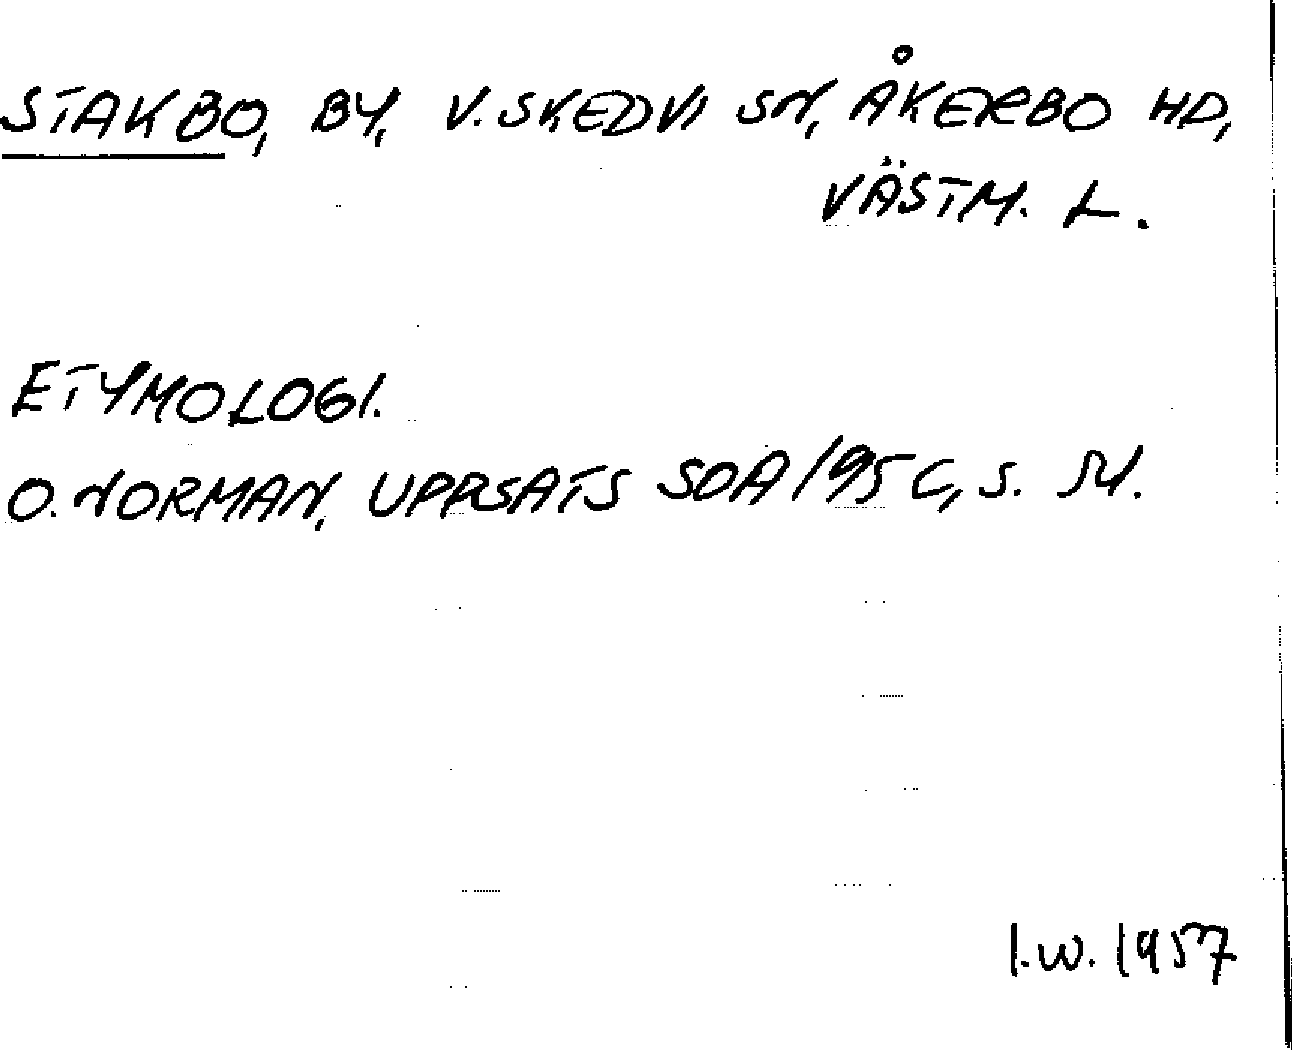 STAKBO, BY, V. SKEDVI SN, ÅKERBO HD,
VÄSTM. L.
ETYMOLOGI.
O. NORMAN, UPPSATS SOA 195 C, S. 51.
I.W. 1957